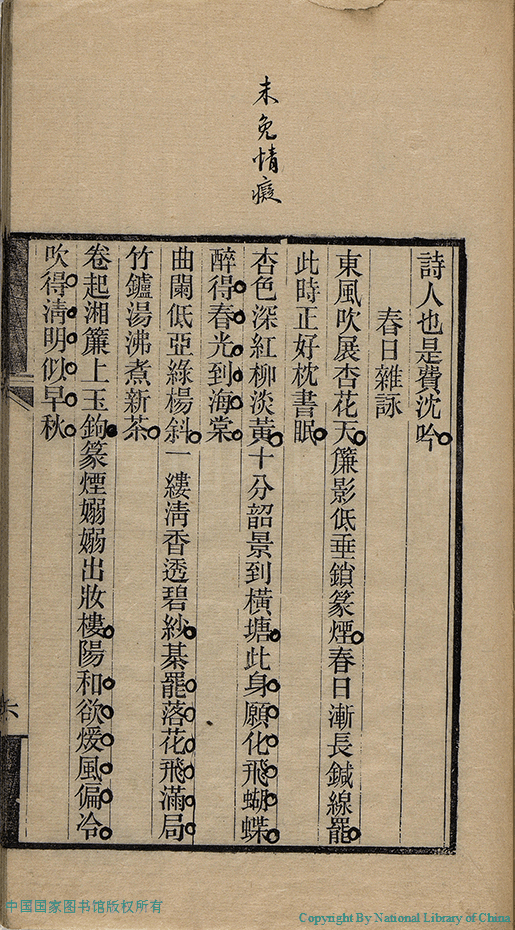 未免情癡
詩人也是費沈吟
春日雜詠
東風吹展杏花天簾影低垂鎖篆煙春日漸長鍼線罷
此時正好枕書眠
杏色深紅柳淡黃十分韶景到橫塘此身願化飛蝴蝶
醉得春光到海棠
曲闌低亞綠楊斜一縷淸香透碧紗棊罷落花飛滿局
竹鑪湯沸煮新茶
卷起湘簾上玉鉤篆煙嫋嫋出妝樓陽和欲煖風偏冷
吹得淸明似早秋
六
中国国家图书馆版权所有
Copyright By National Library of China